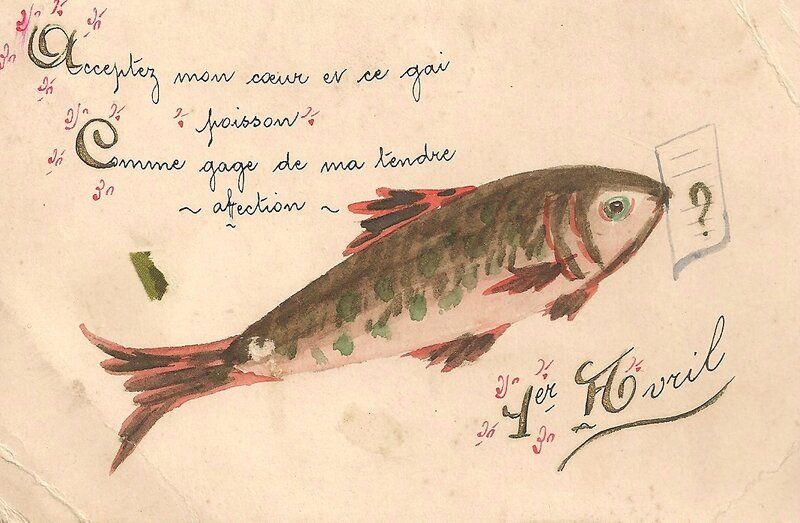 Acceptez mon cœur et ce gai
poisson
Comme gage de ma tendre
~ afection ~
?
1er Avril